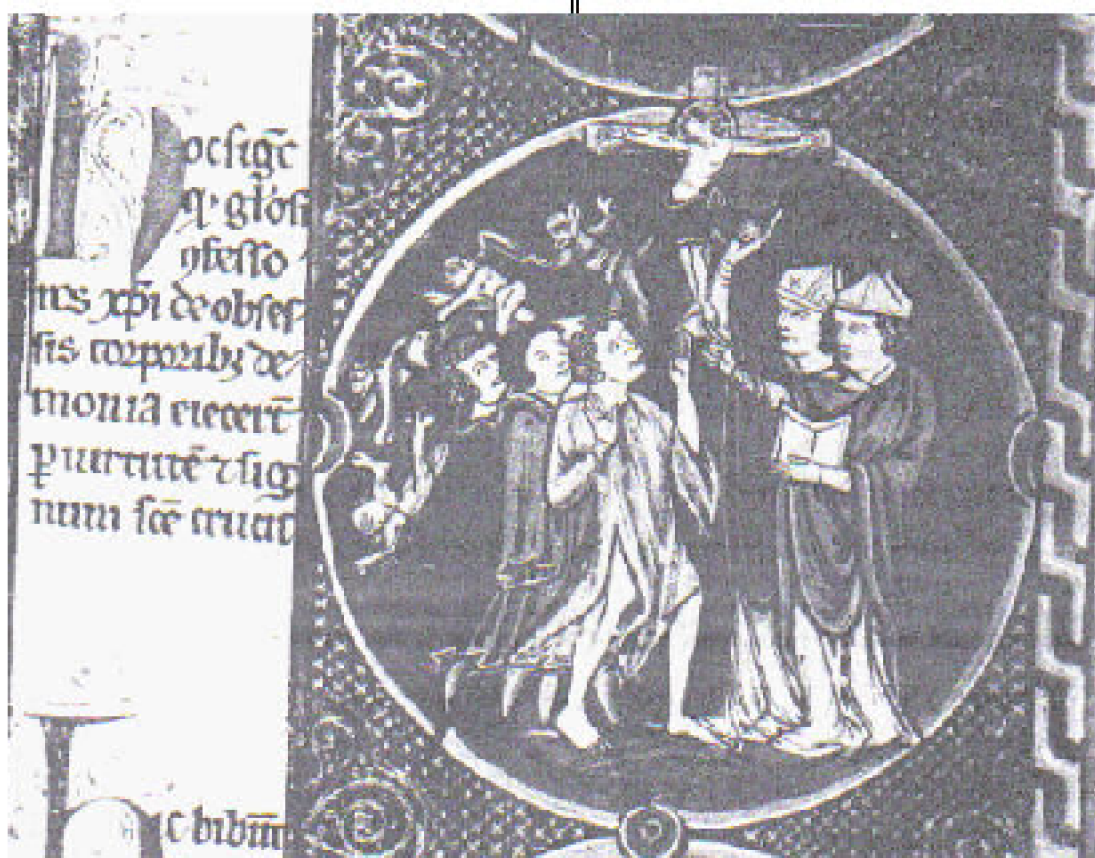 Hoc sigc̄
q; gl'osi
ꝯfesso
res xp̄i de obses
sis corporibꝫ de
monia eiecert̄
ꝑ uirtutē ⁊ sig
num sc̄e cruciſ
c bibūt